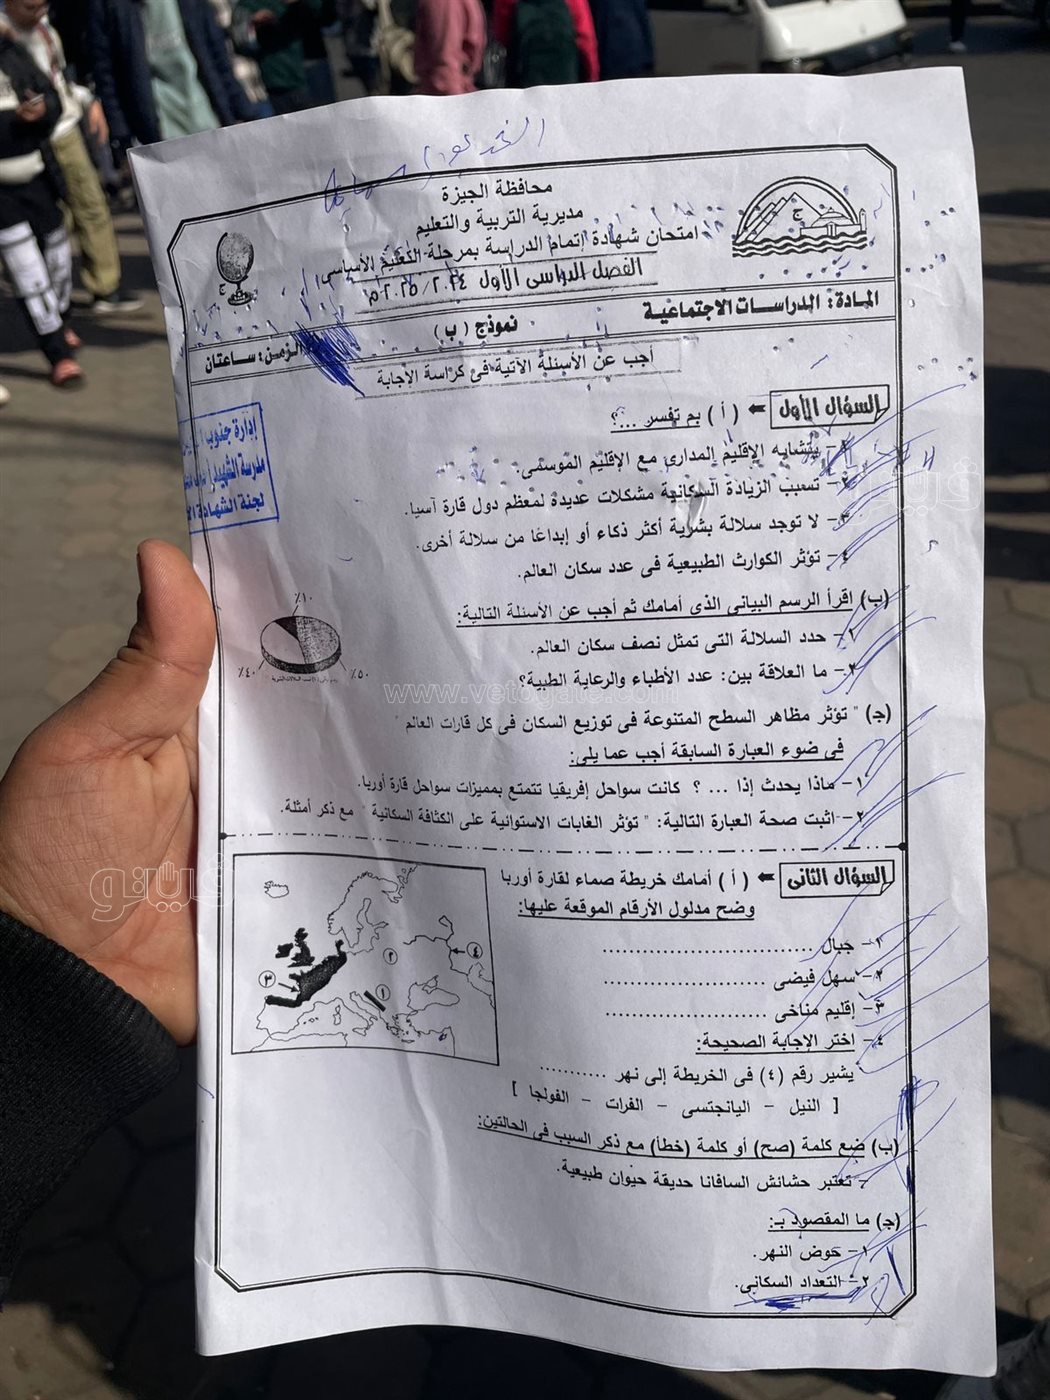 محافظة الجيزة
مديرية التربية والتعليم
امتحان شهادة إتمام الدراسة بمرحلة التعليم الأساسى
الفصل الدراسى الأول ٢٠٢٤/ ٢٠٢٥م
المادة: الدراسات الاجتماعية نموذج ( ب ) الزمن: ساعتان
أجب عن الأسئلة الآتية فى كراسة الإجابة
إدارة جنوب
مدرسة الشهيد
لجنة الشهادة
السؤال الأول ( أ ) بم تفسر ...؟
١- يتشابه الإقليم المدارى مع الإقليم الموسمى.
٢- تسبب الزيادة السكانية مشكلات عديدة لمعظم دول قارة آسيا.
٣- لا توجد سلالة بشرية أكثر ذكاء أو إبداعًا من سلالة أخرى.
٤- تؤثر الكوارث الطبيعية فى عدد سكان العالم.
(ب) اقرأ الرسم البيانى الذى أمامك ثم أجب عن الأسئلة التالية:
١- حدد السلالة التى تمثل نصف سكان العالم.
٢- ما العلاقة بين: عدد الأطباء والرعاية الطبية؟
٪١٠
٪٤٠
٪٥٠
www.vetogate.com
(ج) " تؤثر مظاهر السطح المتنوعة فى توزيع السكان فى كل قارات العالم "
فى ضوء العبارة السابقة أجب عما يلى:
١- ماذا يحدث إذا ... ؟ كانت سواحل إفريقيا تتمتع بمميزات سواحل قارة أوربا.
٢- اثبت صحة العبارة التالية: " تؤثر الغابات الاستوائية على الكثافة السكانية " مع ذكر أمثلة.
السؤال الثانى ( أ ) أمامك خريطة صماء لقارة أوربا
وضح مدلول الأرقام الموقعة عليها:
١- جبال ....................
٢- سهل فيضى ....................
٣- إقليم مناخى ....................
٤- اختر الإجابة الصحيحة:
يشير رقم (٤) فى الخريطة إلى نهر ..........
[ النيل - اليانجتسى - الفرات - الفولجا ]
٤
٢
٣
١
(ب) ضع كلمة (صح) أو كلمة (خطأ) مع ذكر السبب فى الحالتين:
- تعتبر حشائش السافانا حديقة حيوان طبيعية.
(ج) ما المقصود بـ:
١- حوض النهر.
٢- التعداد السكانى.
فيتو
فيتو